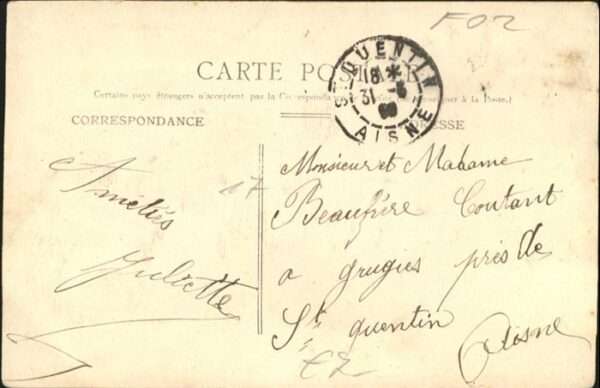 F02
CARTE POSTALE
Certains pays étrangers n'acceptent pas la Correspondance
à la Poste.)
CORRESPONDANCE
ADRESSE
ST QUENTIN
18 *
31 -5
AISNE
Amitiés
Juliette
17
Monsieur et Madame
Beaufrère Coutant
a grugies près de
St quentin
Aisne